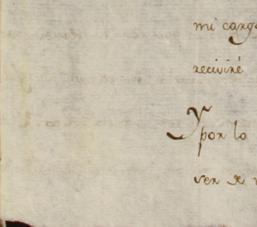 mi carg
reciviré
Y por lo
ver e